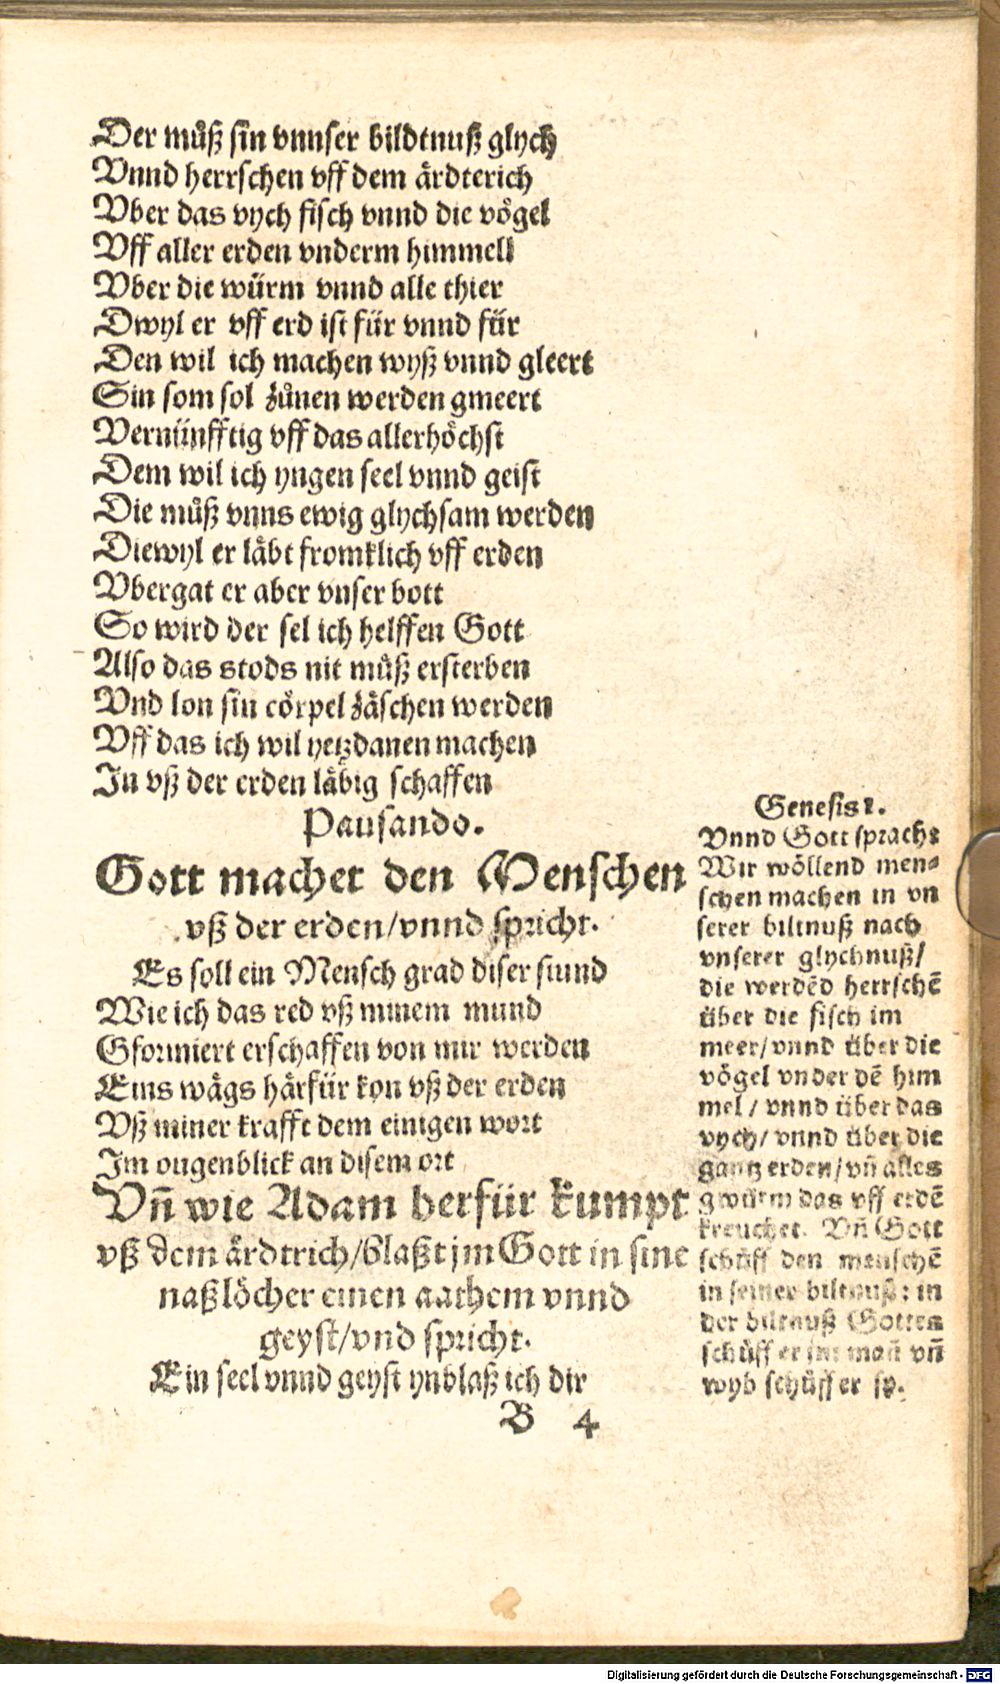 Der muͦß sin vnnser bildtnuß glych
Vnnd herrschen vff dem aͤrdterich
Vber das vych fisch vnnd die voͤgel
Vff aller erden vnderm himmell
Vber die wuͤrm vnnd alle thier
Dwyl er vff erd ist fuͤr vnnd fuͤr
Den wil ich machen wyß vnnd gleert
Sin som sol zuͦnen werden gmeert
Vernuͤnfftig vff das allerhoͤchst
Dem wil ich yngen seel vnnd geist
Die muͦß vnns ewig glychsam werden
Diewyl er laͤbt fromklich vff erden
Vbergat er aber vnser bott
So wird der sel ich helffen Gott
Also das stods nit muͦß ersterben
Vnd lon sin coͤrpel zaͤschen werden
Vff das ich wil yetzdanen machen
In vß der erden laͤbig schaffen
Pausando.
Gott machet den Menschen
vß der erden/vnnd spricht.
Es soll ein Mensch grad diser stund
Wie ich das red vß minem mund
Gformiert erschaffen von mir werden
Eins waͤgs haͤrfuͤr kon vß der erden
Vß miner krafft dem einigen wort
Im ougenblick an disem ort
Vñ wie Adam herfuͤr kumpt
vß dem aͤrdtrich/blaßt jm Gott in sine
naßloͤcher einen aathem vnnd
geyst/vnd spricht.
Ein seel vnnd geyst ynblaß ich dir
B 4
Genesis 1.
Vnnd Gott sprach:
Wir woͤllend men⸗
schen machen in vn
serer biltnuß nach
vnserer glychnuß/
die werdẽd herrschẽ
uͤber die fisch im
meer/vnnd uͤber die
voͤgel vnder dẽ him
mel/vnnd uͤber das
vych/vnnd uͤber die
gantz erden/vñ alles
gwuͤrm das vff erdẽ
kreuchet. Vñ Gott
schuͦff den menschẽ
in seiner biltnuß: in
der biltnuß Gottes
schuͦff er jm mañ vñ
wyb schuͦff er sy.
Digitalisierung gefördert durch die Deutsche Forschungsgemeinschaft - DFG